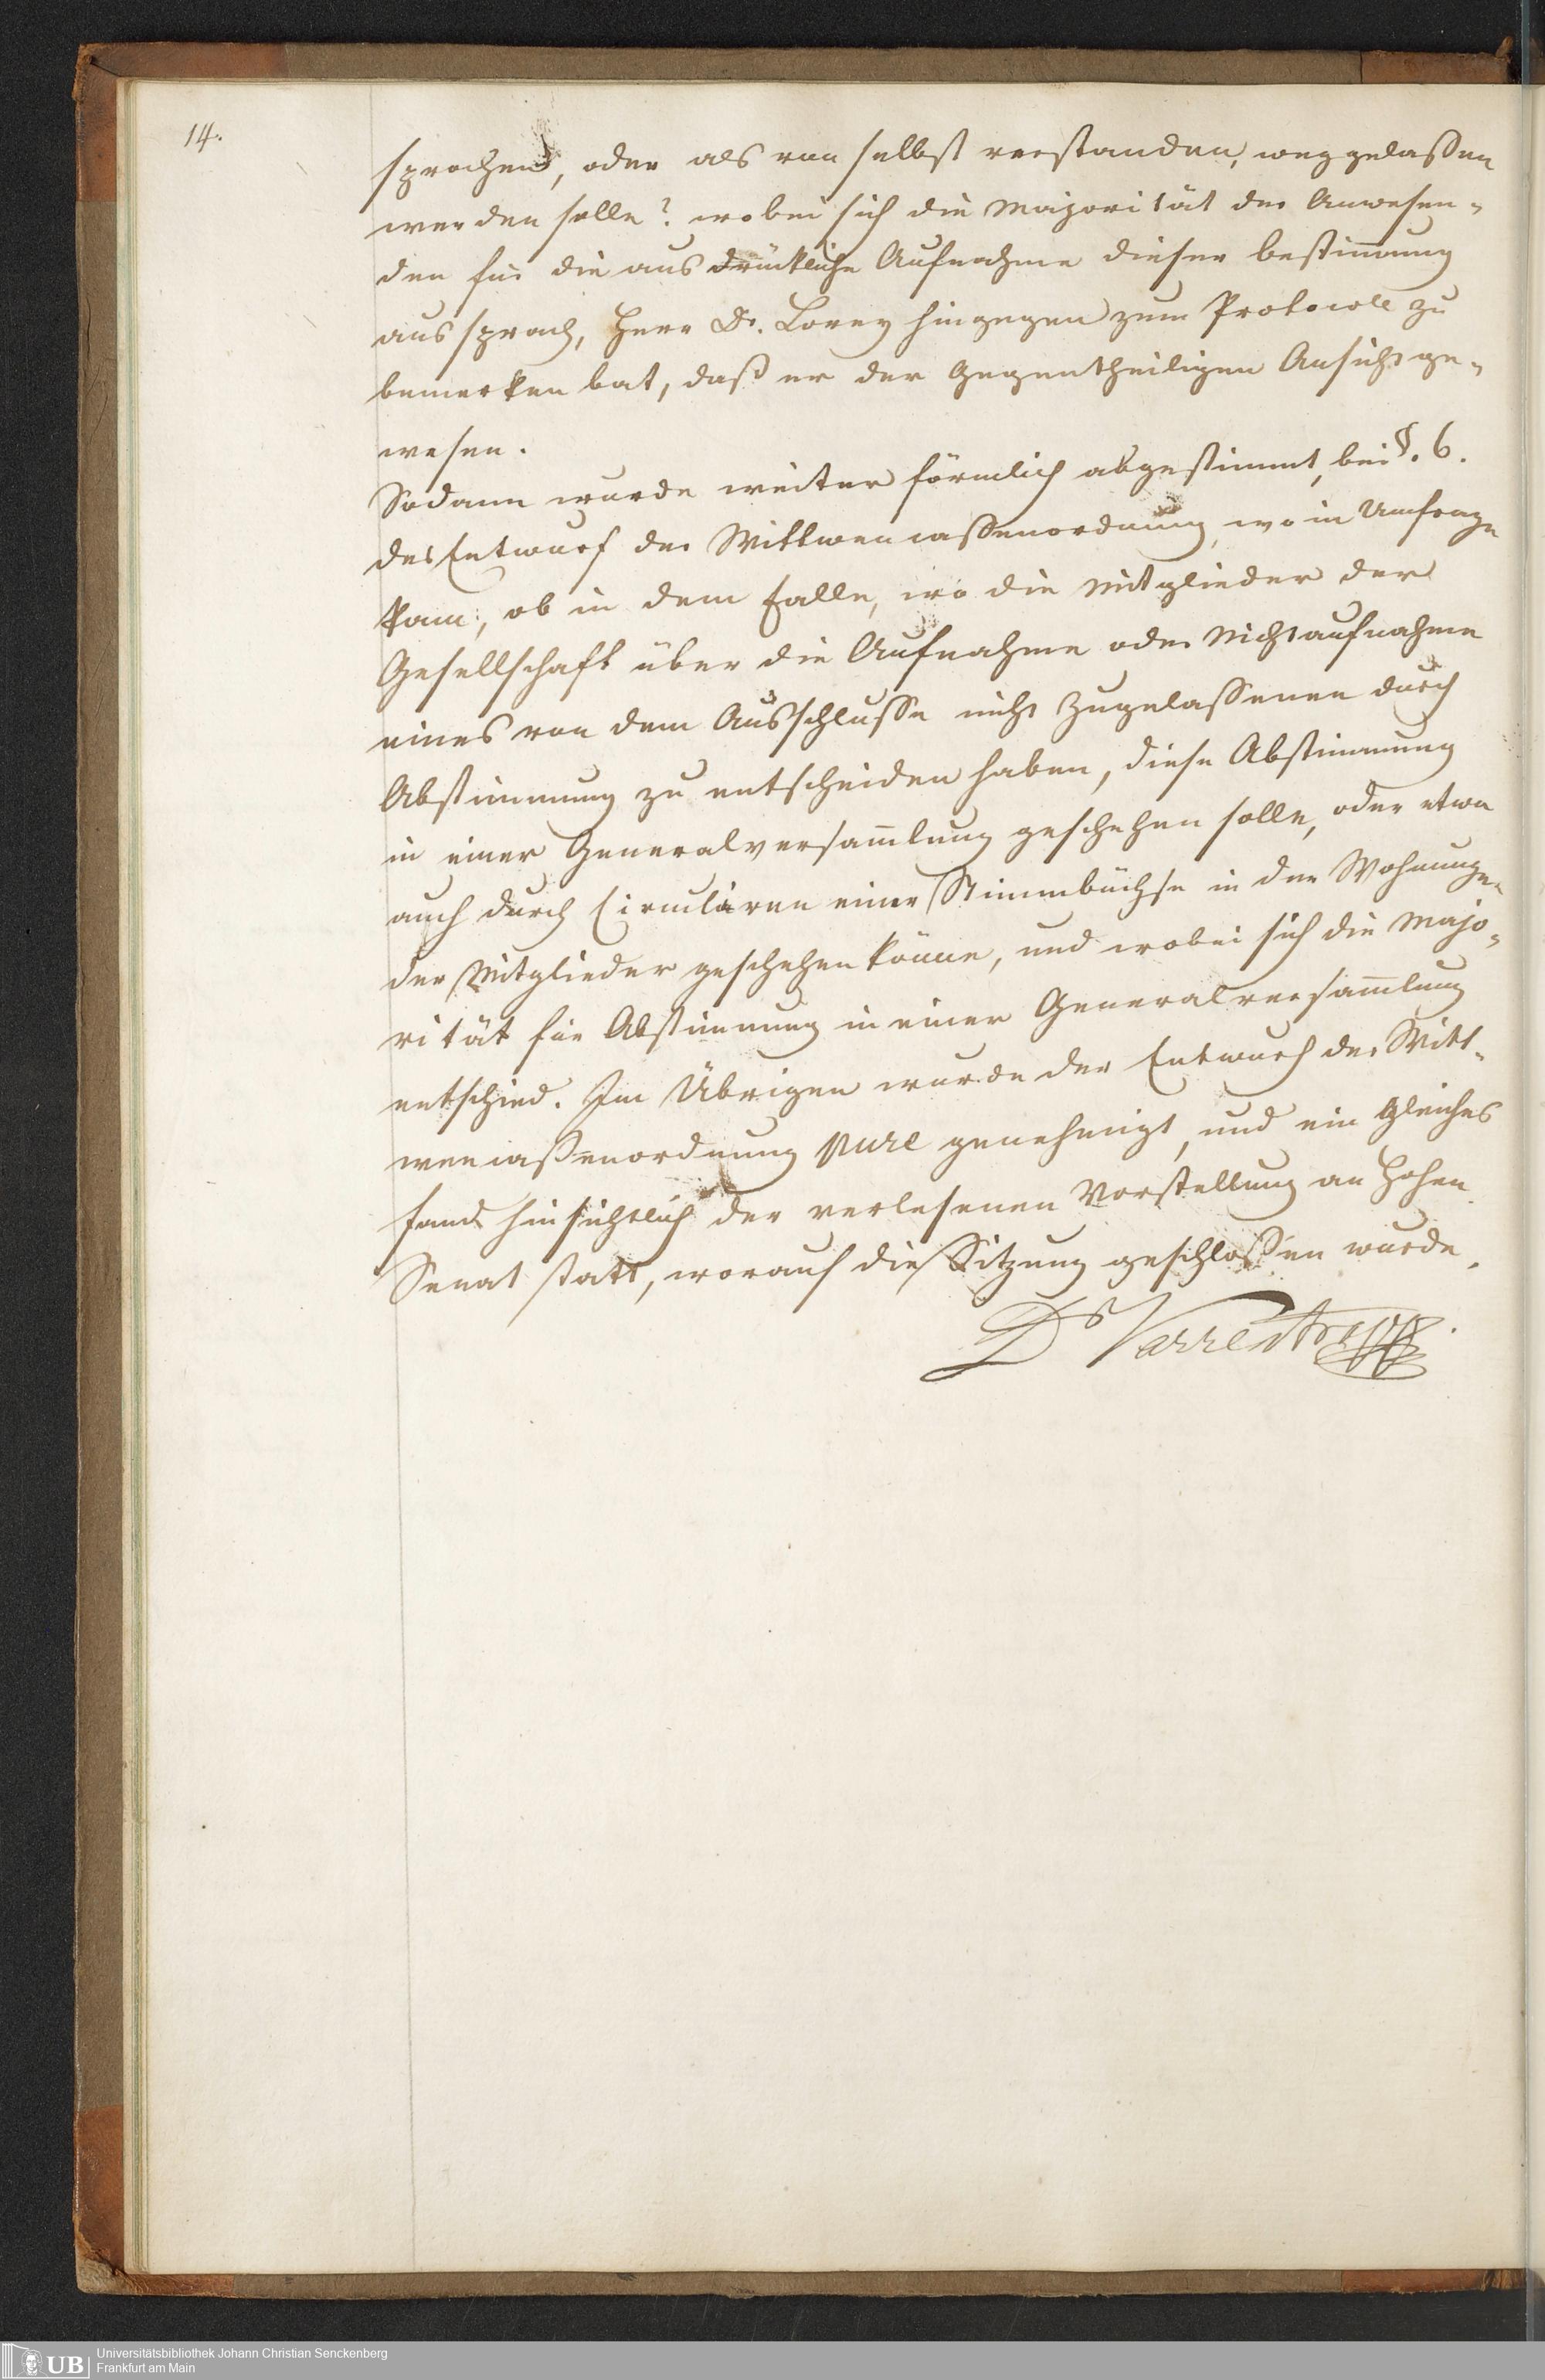 14.
sprochen, oder als von selbst verstanden, weggelaßen
werden solle? wobei sich die Majorität der Anwesen-
den für die ausdrückliche Aufnahme dieser bestim̄ung
aussprach, Herr Dr. Lorey hingegen zum Protocoll zu
bemerken bat, daß er der Gegentheiligen Ansicht ge-
wesen.
Sodann wurde weiter förmlich abgestimmt, bei §. 6.
des Entwurf der Wittwencaßenordnung, wo in Umfrage
kam, ob in dem Falle, wo die Mitglieder der
Gesellschaft über die Aufnahme oder Nichtaufnahme
eines von dem Ausschlusse nicht Zugelassenen durch
Abstimmung zu entscheiden haben, diese Abstimmung
in einer Generalversam̄lung geschehen solle, oder etwa
auch durch Circuliren einer Stimmbüchse in den Wohnungen
der Mitglieder geschehen könne, und wobei sich die Majo-
rität für Abstimmung in einer Generalversam̄lung
entschied. Im Übrigen wurde der Entwurf der Witt-
wencaßenordnung pure genehmigt, und ein Gleiches
fand hinsichtlich der verlesenen Vorstellung an Hohen
Senat statt, worauf die Sitzung geschloßen wurde.
Dr Varrentrapp.
UB
Universitätsbibliothek Johann Christian Senckenberg
Frankfurt am Main